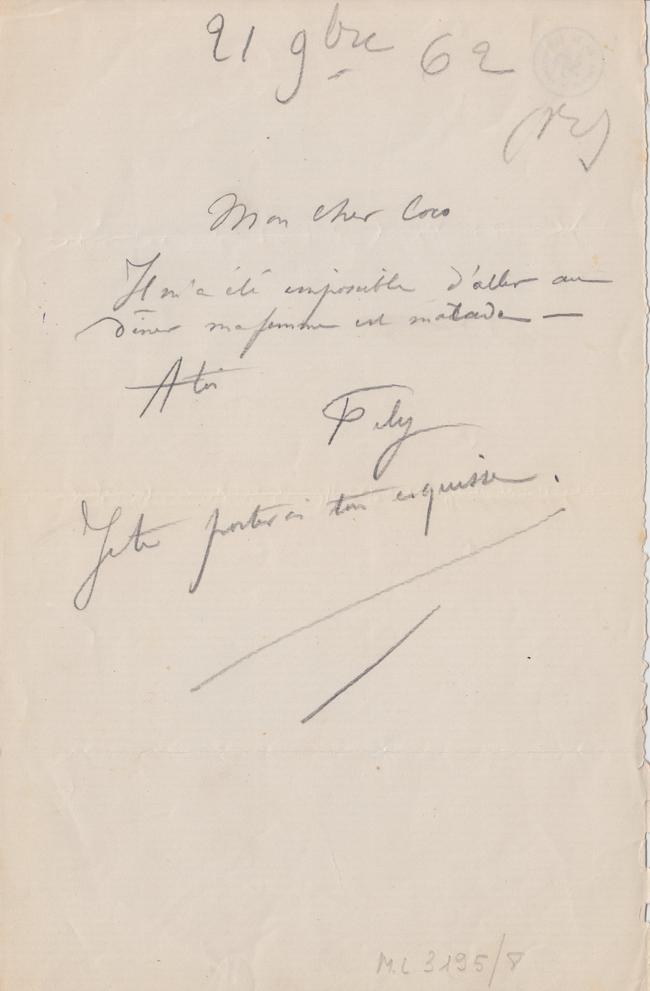 21 9bre 62
(R)
Mon cher Coco
Il m'a été impossible d'aller au
dîner ma femme est malade —
A toi
Fély
Je te porterai ton esquisse.
M.L 3195/8